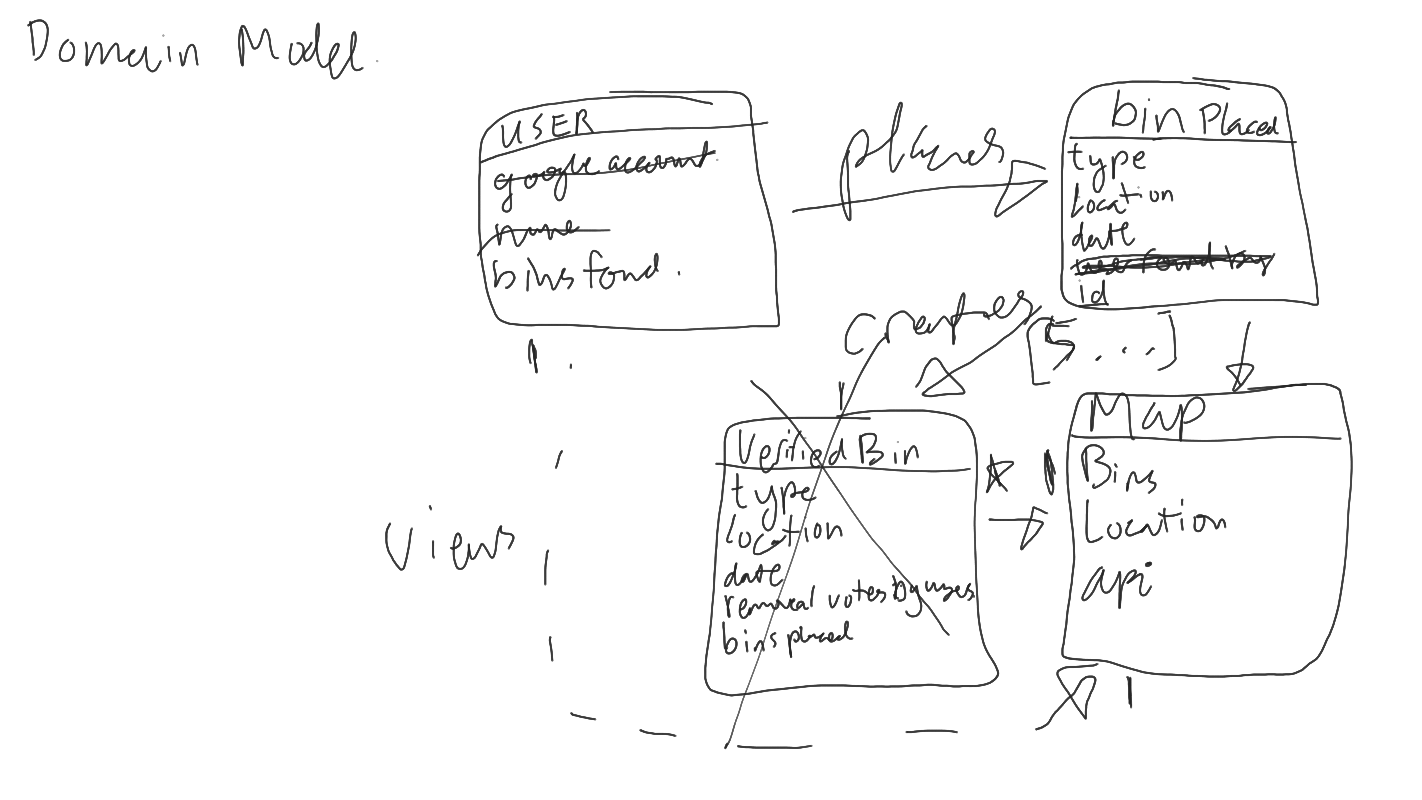 Domain Model.
USER
google account
name
bins fond.
places
bin Placed
type
Location
date
user found by
id
creates
[5...]
1
1
Verified Bin
type
location
date
removal votes by uses
bins placed
* 1
Map
Bins
Location
api
Views
1